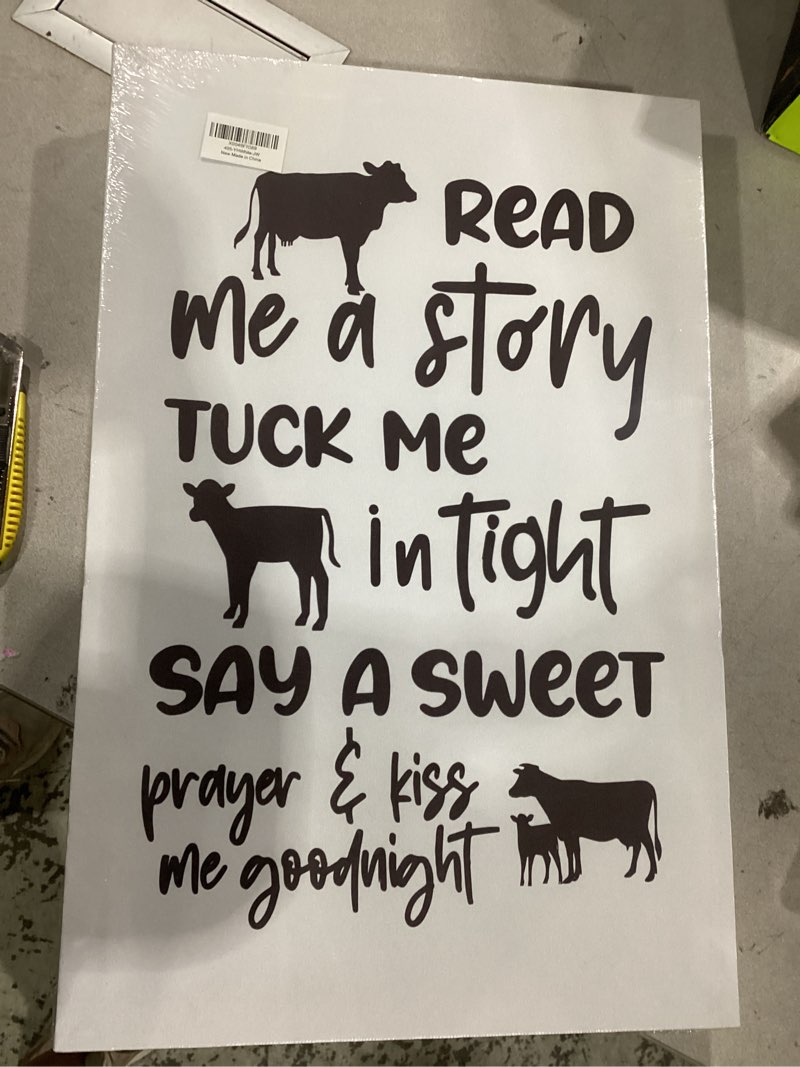 New Made in China
READ
me a story
TUCK Me
in Tight
SAY A SWeeT
prayer & kiss
me goodnight